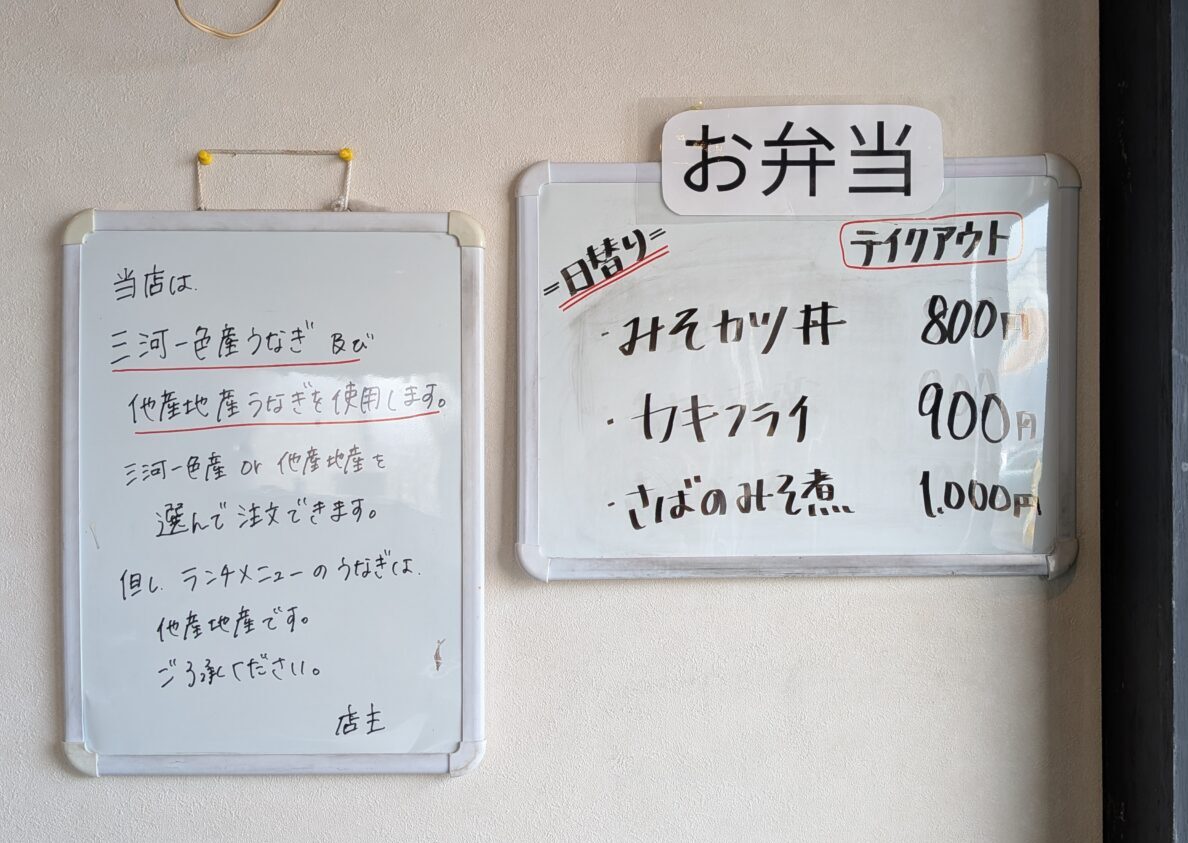 当店は、
三河一色産うなぎ 及び
他産地産うなぎを使用します。
三河一色産 or 他産地産を
選んで注文できます。
但し、ランチメニューのうなぎは、
他産地産です。
ご了承ください。
店主
お弁当
=日替り=
テイクアウト
・みそカツ丼 800円
・カキフライ 900円
・さばのみそ煮 1,000円